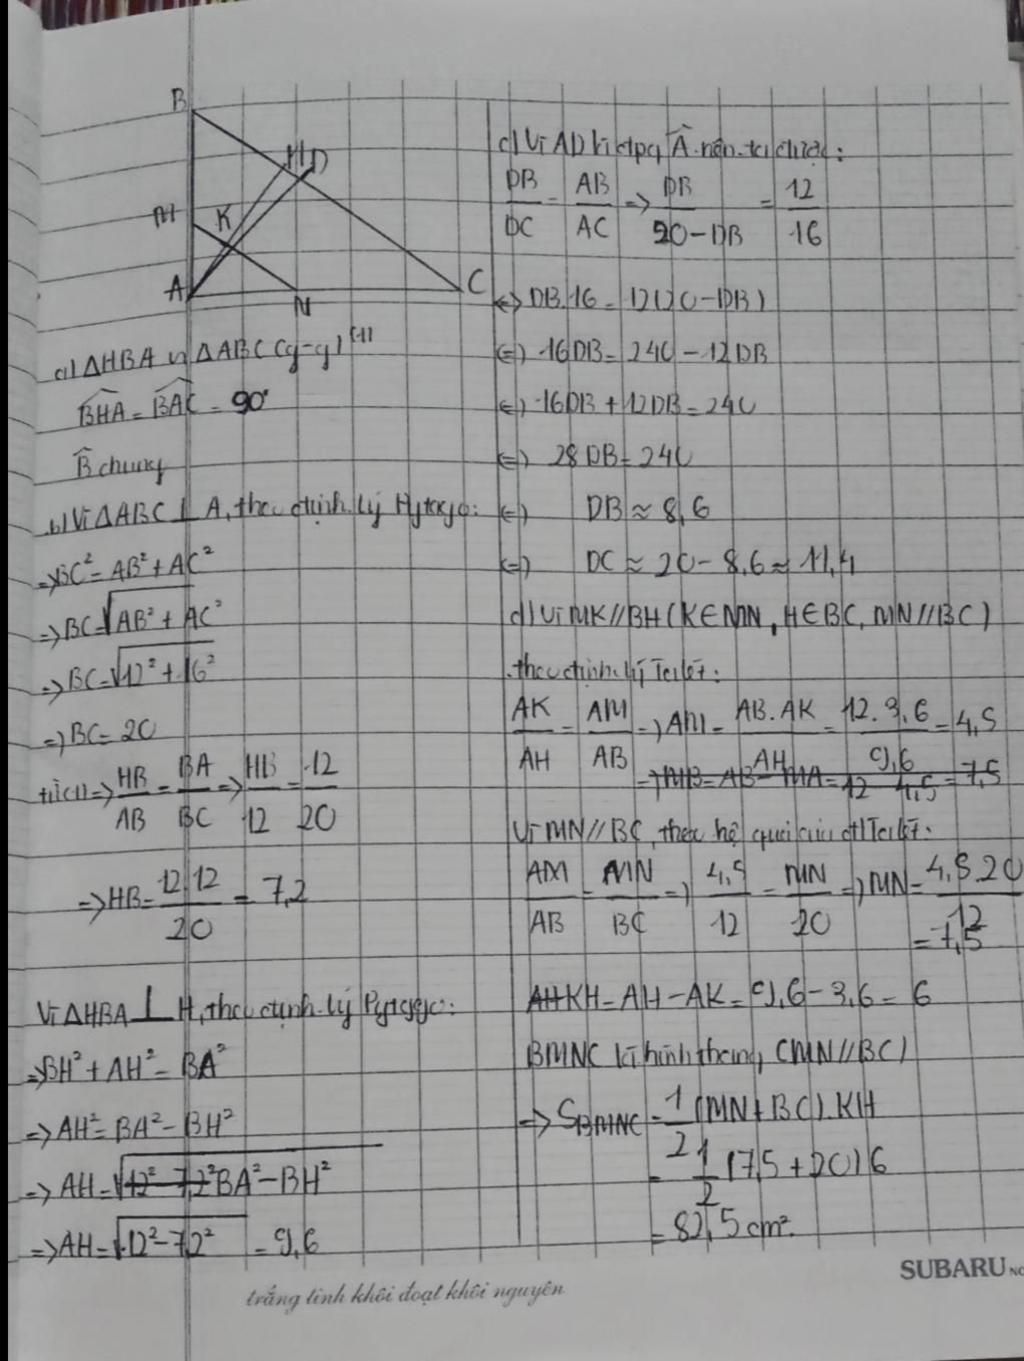 B
H D
M K
A N C
a) ΔHBA ∽ ΔABC (g-g) (1)
BHA = BAC = 90°
B̂ chung
b) Vì ΔABC ⊥ A, theo định lý Pytago:
=> BC² = AB² + AC²
=> BC = √AB² + AC²
=> BC = √12² + 16²
=> BC = 20
từ (1) => HB/AB = BA/BC => HB/12 = 12/20
=> HB = 12.12/20 = 7,2
Vì ΔHBA ⊥ H, theo định lý Pytago:
=> BH² + AH² = BA²
=> AH² = BA² - BH²
=> AH = √12² - 7,2² BA² - BH²
=> AH = √12² - 7,2² = 9,6
c) Vì AD là đpg Â nên ta được:
DB/DC = AB/AC => DB/20-DB = 12/16
<=> DB.16 = 12(20-DB)
<=> 16DB = 240 - 12DB
<=> 16DB + 12DB = 240
<=> 28DB = 240
<=> DB ≈ 8,6
<=> DC ≈ 20 - 8,6 ≈ 11,4
d) Vì MK//BH (K∈MN, H∈BC, MN//BC)
theo định lý Talét:
AK/AH = AM/AB => AM = AB.AK/AH = 12.3,6/9,6 = 4,5
=> MB = AB - MA = 12 4,5 = 7,5
Vì MN//BC, theo hệ quả của đl Talét:
AM/AB = MN/BC => 4,5/12 = MN/20 => MN = 4,5.20/12
= 7,5
AH KH = AH - AK = 9,6 - 3,6 = 6
BMNC là hình thang (MN//BC)
=> SBMNC = 1/2 (MN + BC).KH
= 1/2 (7,5 + 20)6
= 82,5 cm².
SUBARU
trắng tinh khôi đoạt khôi nguyên